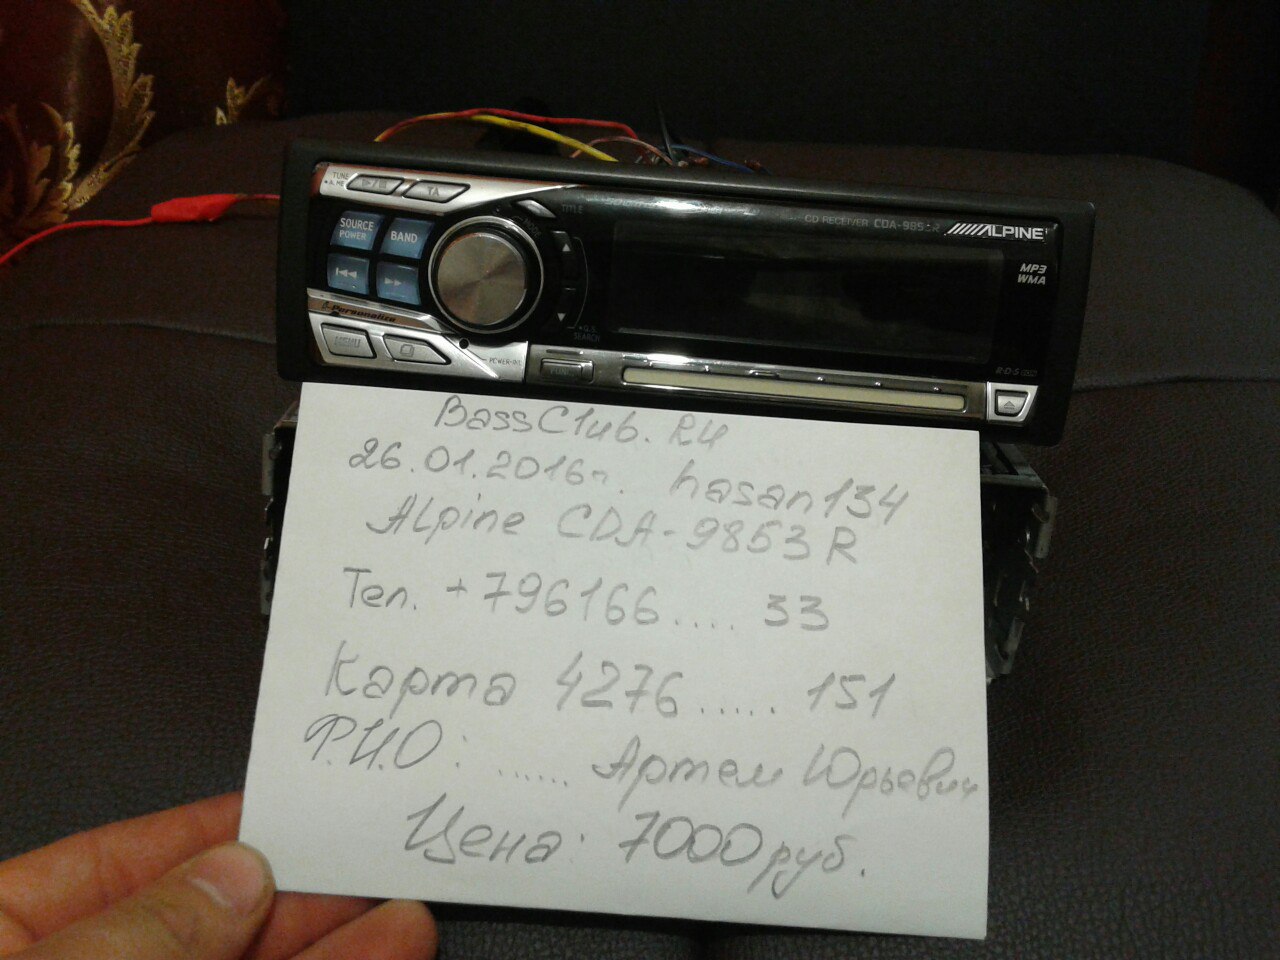 TUNE
TA
SOURCE
POWER
BAND
TITLE
MODE
CD RECEIVER CDA-985 R
ALPINE
MP3
WMA
Personalize
MENU
SEARCH
FUNC
R·D·S
BassClub.RU
26.01.2016г. hasan134
Alpine CDA-9853R
Тел. +796166.... 33
Карта 4276..... 151
Ф.И.О: ...... Артем Юрьевич
Цена: 7000руб.